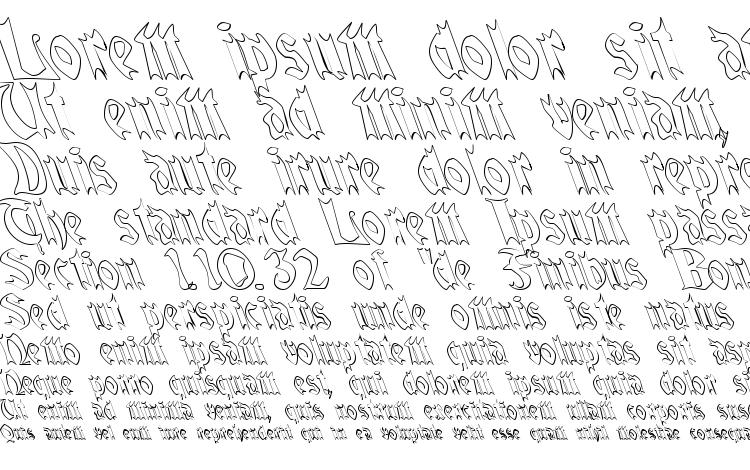 Lorem ipsum dolor sit a
Ut enim ad minim veniam,
Duis aute irure dolor in repre
The standard Lorem Ipsum pass
Section 1.10.32 of "de Finibus Bon
Sed ut perspiciatis unde omnis iste natus
Nemo enim ipsam voluptatem quia voluptas sit as
Neque porro quisquam est, qui dolorem ipsum quia dolor s
Ut enim ad minima veniam, quis nostrum exercitationem ullam corporis susc
Quis autem vel eum iure reprehenderit qui in ea voluptate velit esse quam nihil molestiae consequa